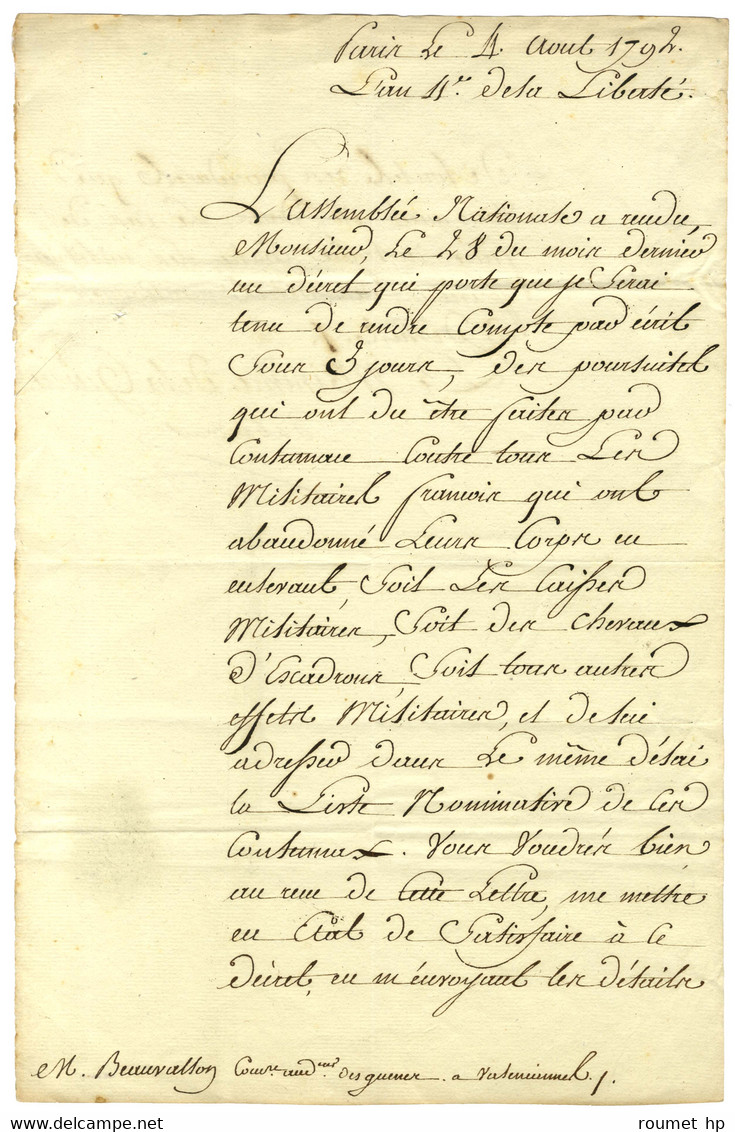 Paris Le 4. Aout 1792.
L'an 4e. de la Liberté.
L'Assemblée Nationale a rendu,
Monsieur, Le 28 du mois dernier
un décret qui porte que je Serai
tenu de rendre Compte par écrit
Sous 3 jours, des poursuites
qui ont du être faites par
Contumace Contre tous Les
Militaires francois qui ont
abandonné Leurs Corps en
enlevant, Soit Les Caisses
Militaires, Soit des chevaux
d'Escadrons Soit tous autres
effets Militaires, et de lui
adresser dans Le même délai
la Liste Nominative de Ces
Contumax. Vous Voudrés bien
au reçu de Cette Lettre, me mettre
en Etat de Satisfaire à ce
décret, en m'envoyant les détails
M. Beauvallon Comre. aud. des guerres. a Valenciennes.
roumet hp
delcampe.net